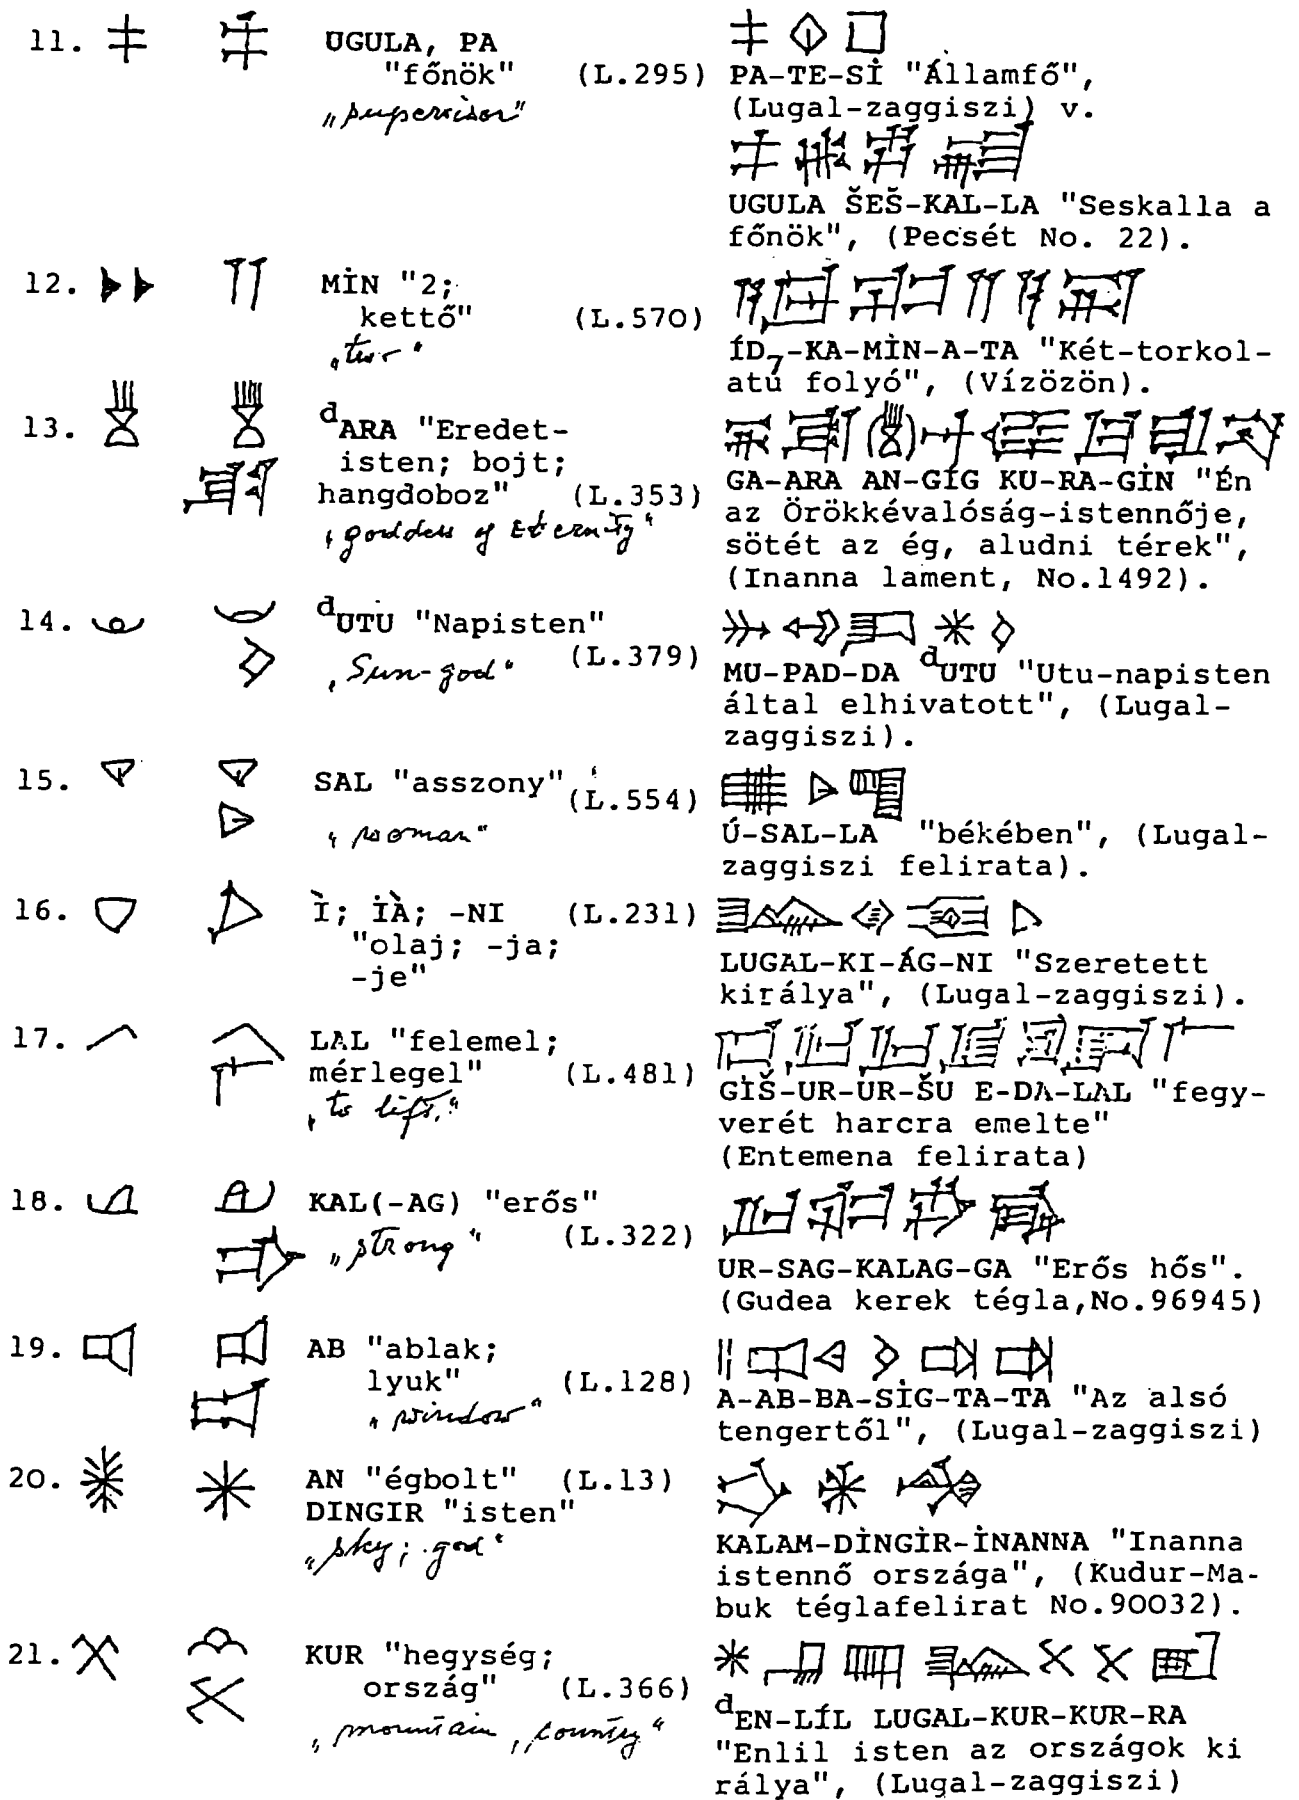 11. UGULA, PA
"főnök" (L.295)
„supervisor"
PA-TE-Sİ "Államfő",
(Lugal-zaggiszi) v.
UGULA ŠEŠ-KAL-LA "Seskalla a
főnök", (Pecsét No. 22).
12. MİN "2;
kettő" (L.570)
„two"
ÍD7-KA-MİN-A-TA "Két-torkol-
atú folyó", (Vízözön).
13. dARA "Eredet-
isten; bojt;
hangdoboz" (L.353)
„goddess of Eternity"
GA-ARA AN-GÍG KU-RA-GİN "Én
az Örökkévalóság-istennője,
sötét az ég, aludni térek",
(Inanna lament, No.1492).
14. dUTU "Napisten"
(L.379)
„Sun-god"
MU-PAD-DA dUTU "Utu-napisten
által elhivatott", (Lugal-
zaggiszi).
15. SAL "asszony"
(L.554)
„woman"
Ú-SAL-LA "békében", (Lugal-
zaggiszi felirata).
16. Ì; İÀ; -NI (L.231)
"olaj; -ja;
-je"
LUGAL-KI-ÁG-NI "Szeretett
királya", (Lugal-zaggiszi).
17. LAL "felemel;
mérlegel" (L.481)
„to lift."
GİŠ-UR-UR-ŠU E-DA-LAL "fegy-
verét harcra emelte"
(Entemena felirata)
18. KAL(-AG) "erős"
(L.322)
„strong"
UR-SAG-KALAG-GA "Erős hős".
(Gudea kerek tégla,No.96945)
19. AB "ablak;
lyuk" (L.128)
„window"
A-AB-BA-SİG-TA-TA "Az alsó
tengertől", (Lugal-zaggiszi)
20. AN "égbolt" (L.13)
DINGIR "isten"
„sky; god"
KALAM-DİNGİR-İNANNA "Inanna
istennő országa", (Kudur-Ma-
buk téglafelirat No.90032).
21. KUR "hegység;
ország" (L.366)
„mountain, country"
dEN-LÍL LUGAL-KUR-KUR-RA
"Enlil isten az országok ki
rálya", (Lugal-zaggiszi)